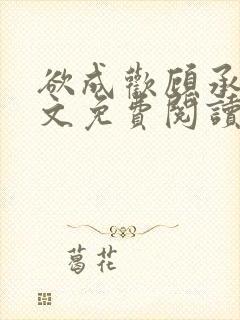 欲成歡顧承
文免費閱讀
葛花